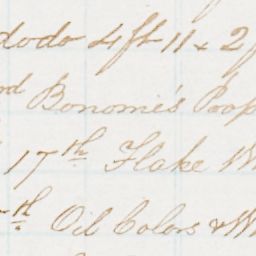 dodo 4ft 11 x 2f
nd Bonomi's Poop
17th Flake W
th Oil Colors & W